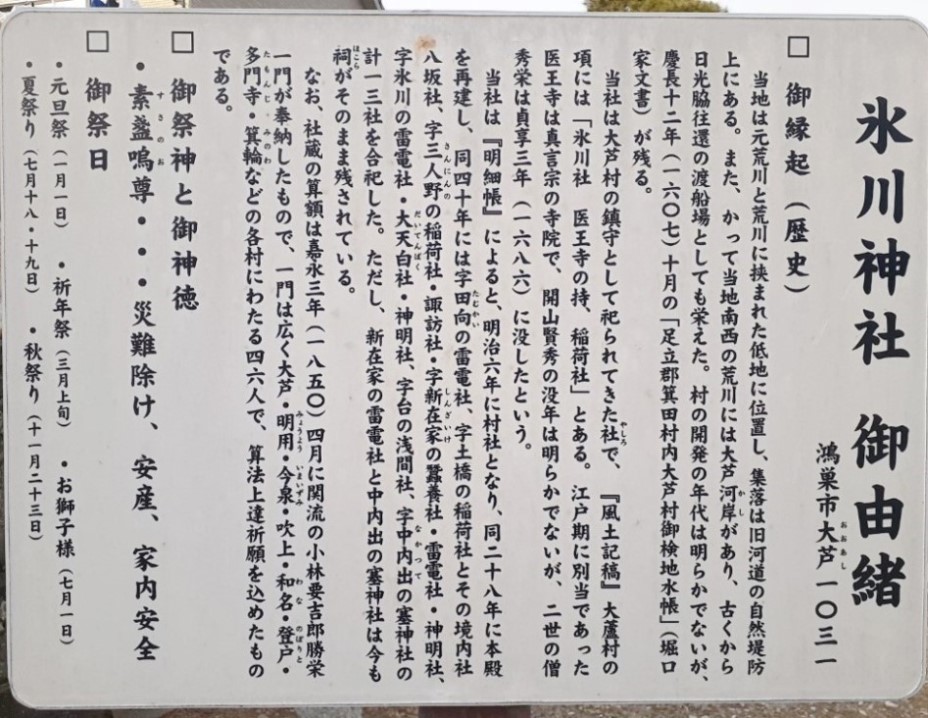 氷川神社　御由緒
鴻巣市大芦一〇三一
□　御縁起（歴史）
当地は元荒川と荒川に挟まれた低地に位置し、集落は旧河道の自然堤防
上にある。また、かって当地南西の荒川には大芦河岸があり、古くから
日光脇往還の渡船場としても栄えた。村の開発の年代は明らかでないが、
慶長十二年（一六〇七）十月の「足立郡箕田村内大芦村御検地水帳」（堀口
家文書）が残る。
当社は大芦村の鎮守として祀られてきた社で、『風土記稿』大蘆村の
項には「氷川社　医王寺の持、稲荷社」とある。江戸期に別当であった
医王寺は真言宗の寺院で、開山賢秀の没年は明らかでないが、二世の僧
秀栄は貞享三年（一六八六）に没したという。
当社は『明細帳』によると、明治六年に村社となり、同二十八年に本殿
を再建し、同四十年には字田向の雷電社、字土橋の稲荷社とその境内社
八坂社、字三人野の稲荷社・諏訪社・字新在家の蚕養社・雷電社・神明社、
字氷川の雷電社・大天白社・神明社、字台の浅間社、字中内出の塞神社の
計一三社を合祀した。ただし、新在家の雷電社と中内出の塞神社は今も
祠がそのまま残されている。
なお、社蔵の算額は嘉永三年（一八五〇）四月に関流の小林要吉郎勝栄
一門が奉納したもので、一門は広く大芦・明用・今泉・吹上・和名・登戸・
多門寺・箕輪などの各村にわたる四六人で、算法上達祈願を込めたもの
である。
□　御祭神と御神徳
・素盞嗚尊・・・災難除け、安産、家内安全
□　御祭日
・元旦祭（一月一日）　・祈年祭（三月上旬）　・お獅子様（七月一日）
・夏祭り（七月十八・十九日）　・秋祭り（十一月二十三日）